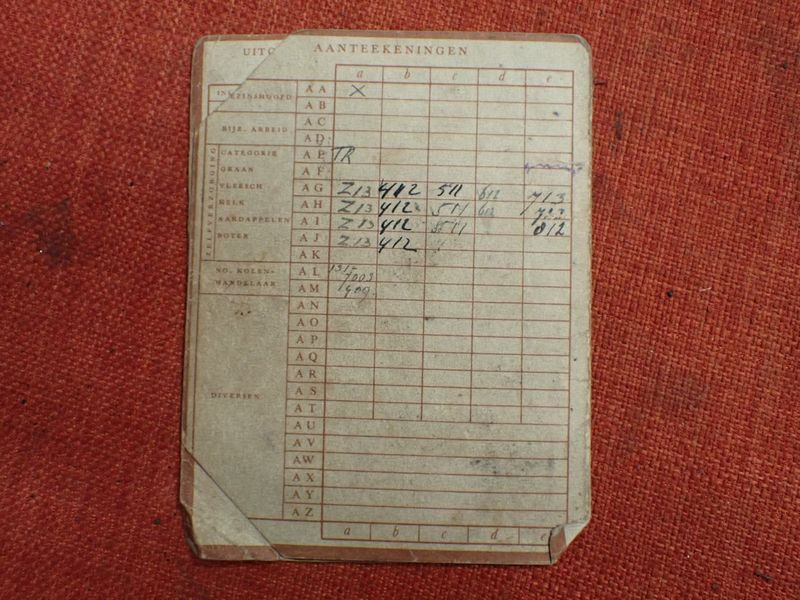 AANTEEKENINGEN
a b c d e
AA X
AB
BIJZ. ARBEID AC
AD
ZELFVERZORGING
CATEGORIE AE TR
GRAAN AF
VLEESCH AG Z13 412 511 612 713
MELK AH Z13 412 511 612 723
AARDAPPELEN AI Z13 412 511 812
BOTER AJ Z13 412
AK
NO. KOLEN- AL
HANDELAAR AM
AN
AO
AP
AQ
AR
DIVERSEN AS
AT
AU
AV
AW
AX
AY
AZ
a b c d e